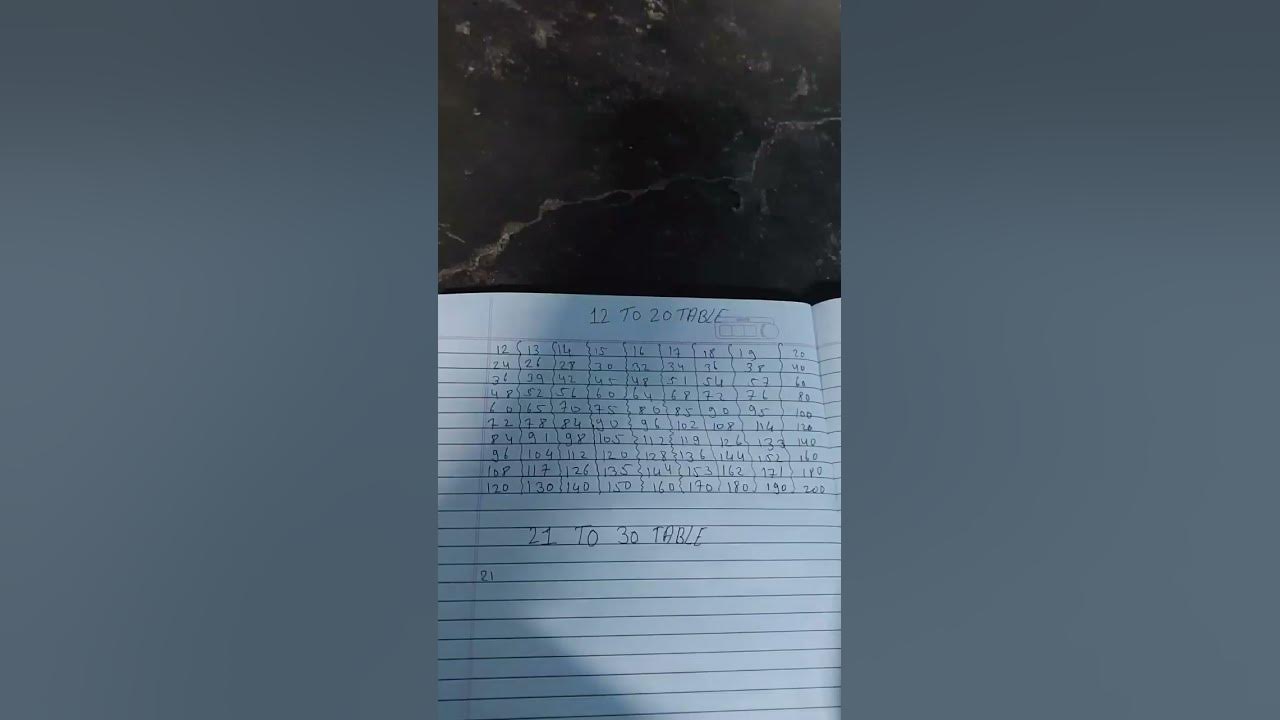 12 TO 20 TABLE
12 13 14 15 16 17 18 19 20
24 26 28 30 32 34 36 38 40
36 39 42 45 48 51 54 57 60
48 52 56 60 64 68 72 76 80
60 65 70 75 80 85 90 95 100
72 78 84 90 96 102 108 114 120
84 91 98 105 112 119 126 133 140
96 104 112 120 128 136 144 152 160
108 117 126 135 144 153 162 171 180
120 130 140 150 160 170 180 190 200
21 TO 30 TABLE
21